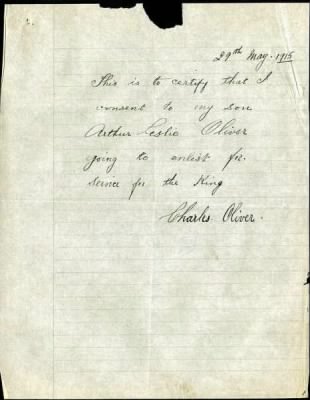 29th May. 1915
This is to certify that I
consent to my son
Arthur Leslie Oliver
going to enlist for
service for the King
Charles Oliver.